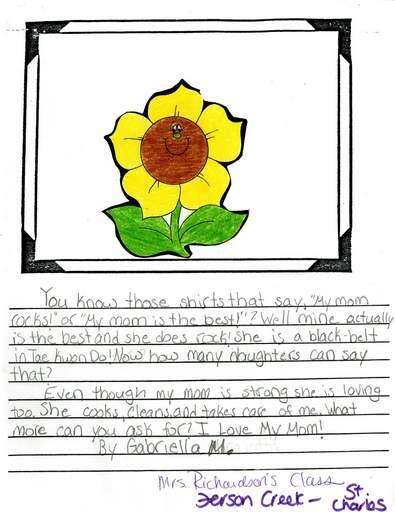 You know those shirts that say, "My mom
rocks!" or "My mom is the best!"? Well mine actually
is the best and she does rock! She is a black-belt
in Tae Kwon Do! Now how many nbughters can say
that?
Even though my mom is strong she is loving
too. She cooks, cleans, and takes care of me. What
more can you ask for? I Love My Mom!
By Gabriella M.
Mrs. Richardson's Class
Ferson Creek - St
Charles